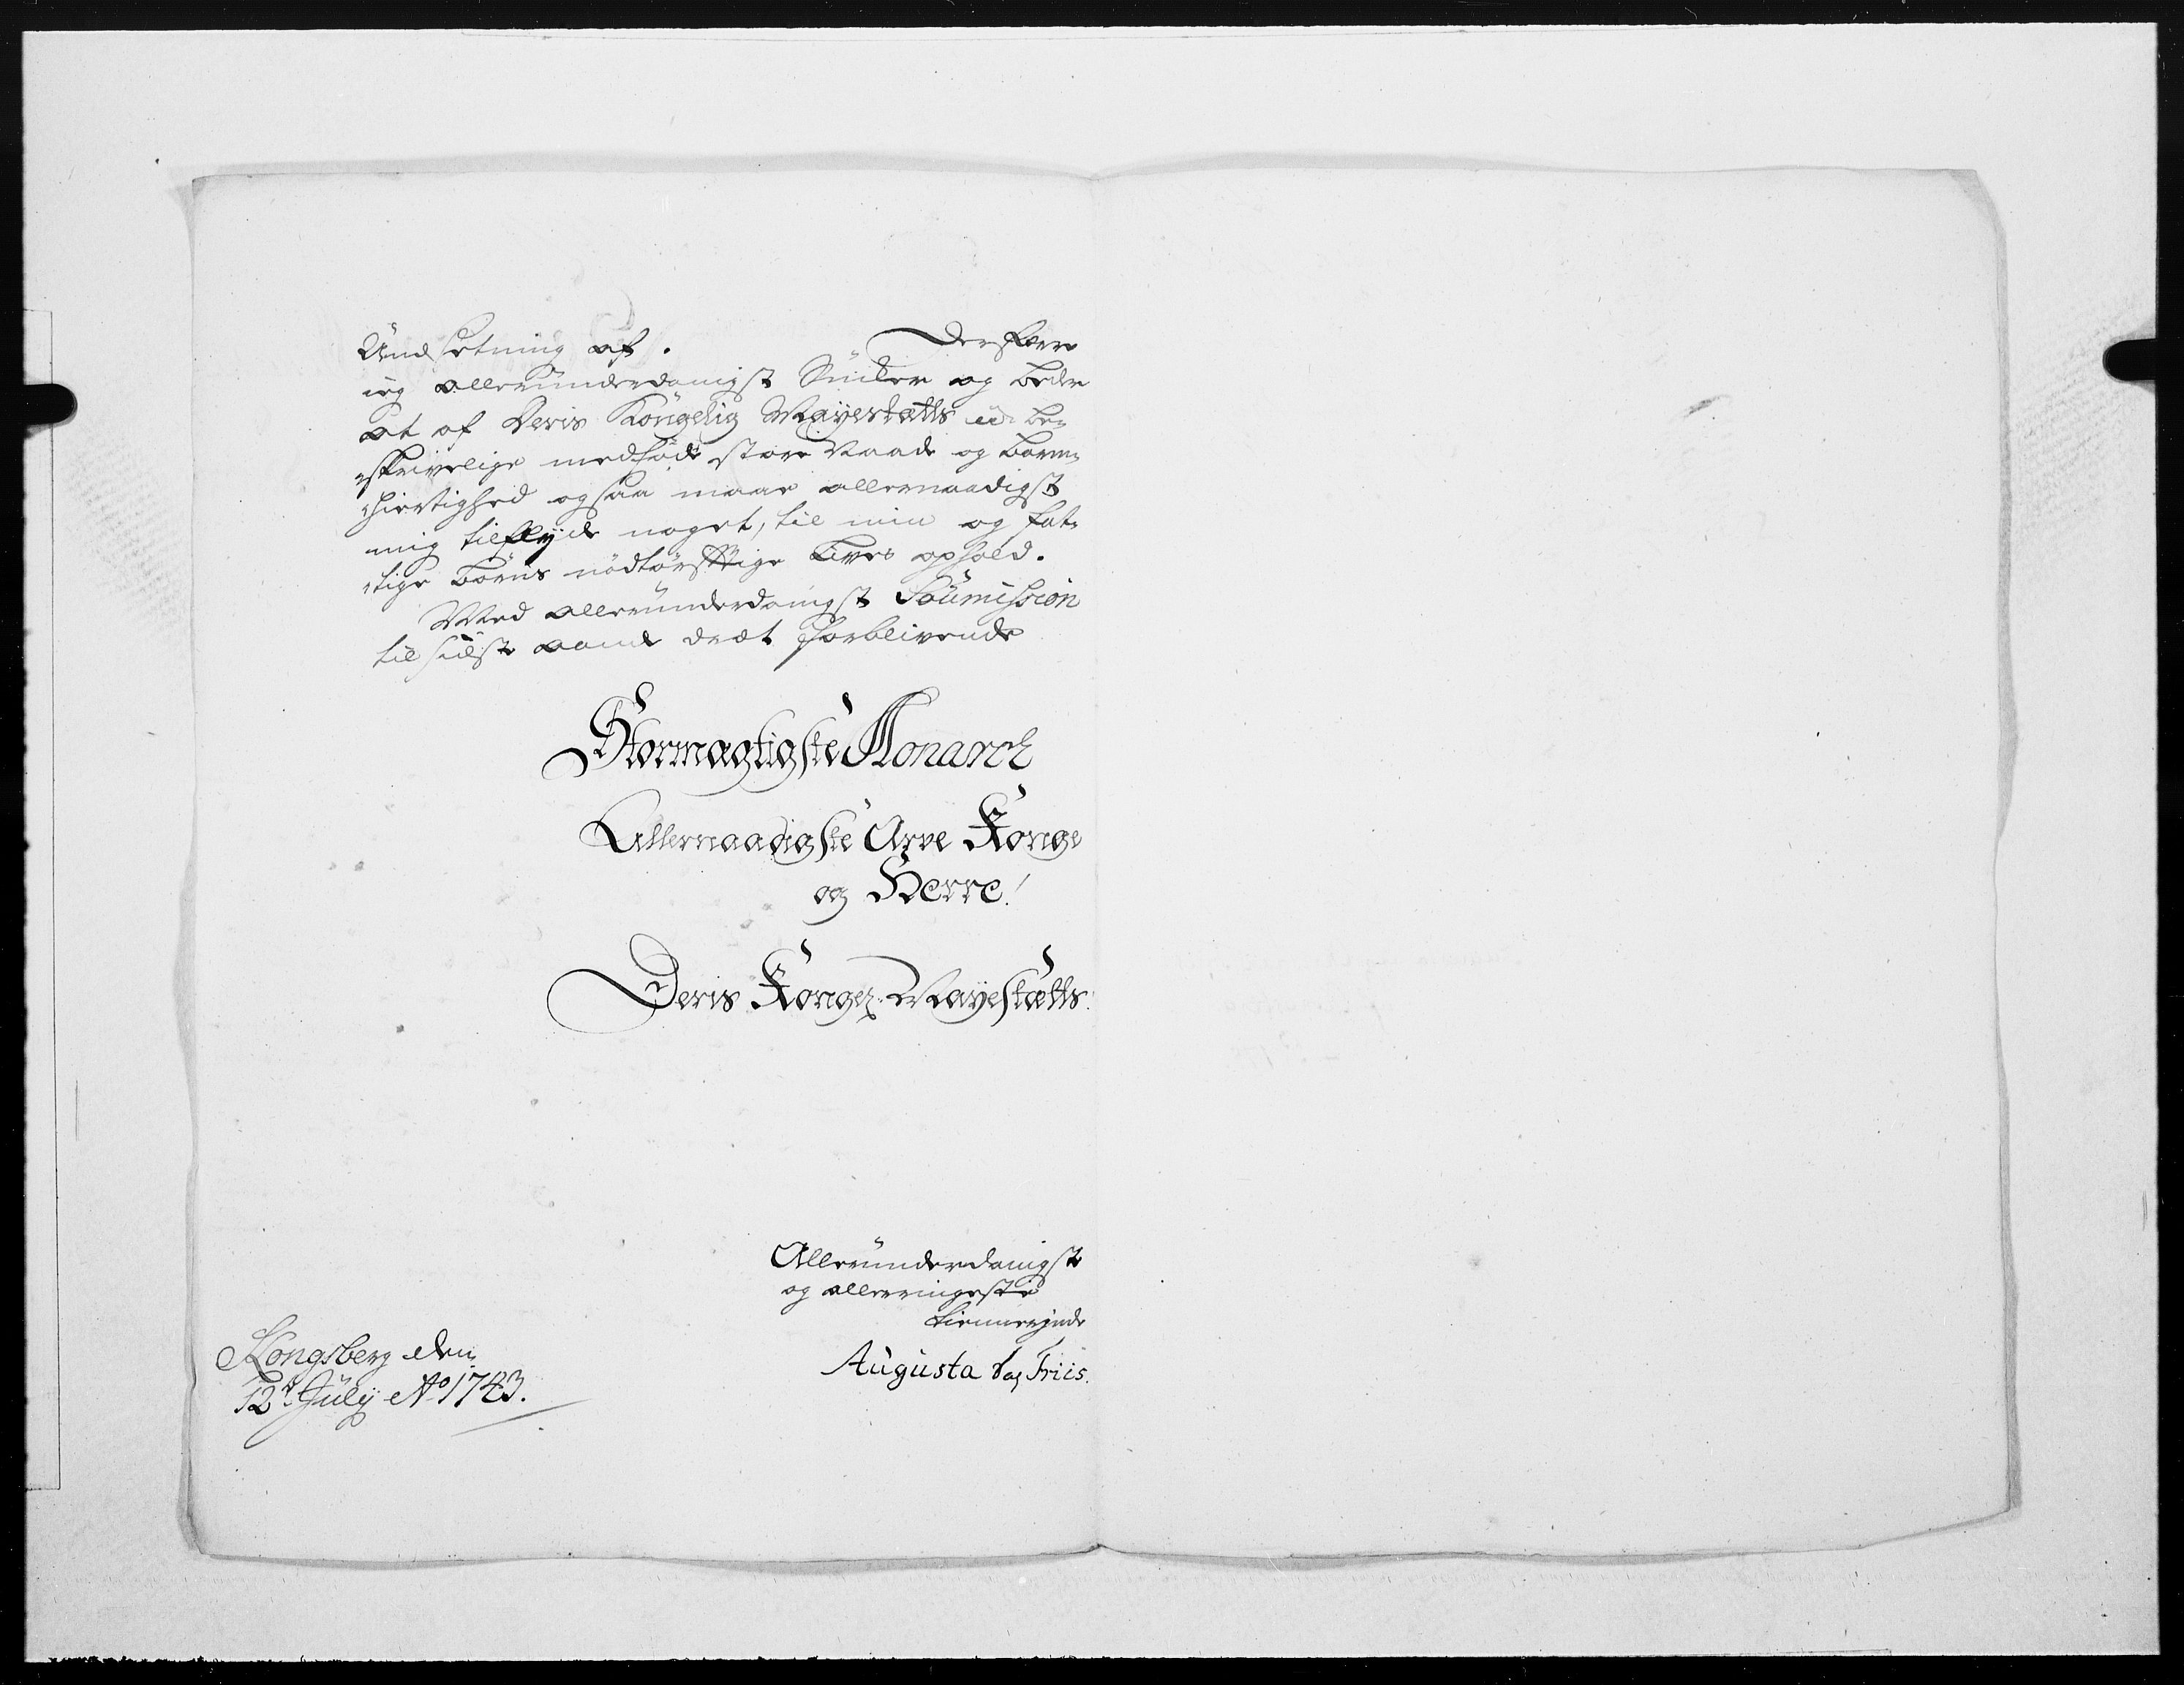 Undsetning af. Derfore
jeg allerunderdanigst Sucker og beder
at af Deris Kongelig Mayestætts ube-
skrivelige medfødde store Naade og barm-
hiertighed ogsaa maae allernaadigst
mig tilflyde noget, til min og fat-
tige børns nødtørfftige Livs ophold.
Med allerunderdanigst Soumission
til sidste aande dræt forblivende
Stormagtigste Monarch
Allernaadigste Arve Konge
og Herre!
Deris Kongel: Mayestætts.
Allerunderdanigste
og allerringeste
tiennerjnde
Augusta Sal Friis.
Kongsberg den
12te July Ao 1743.